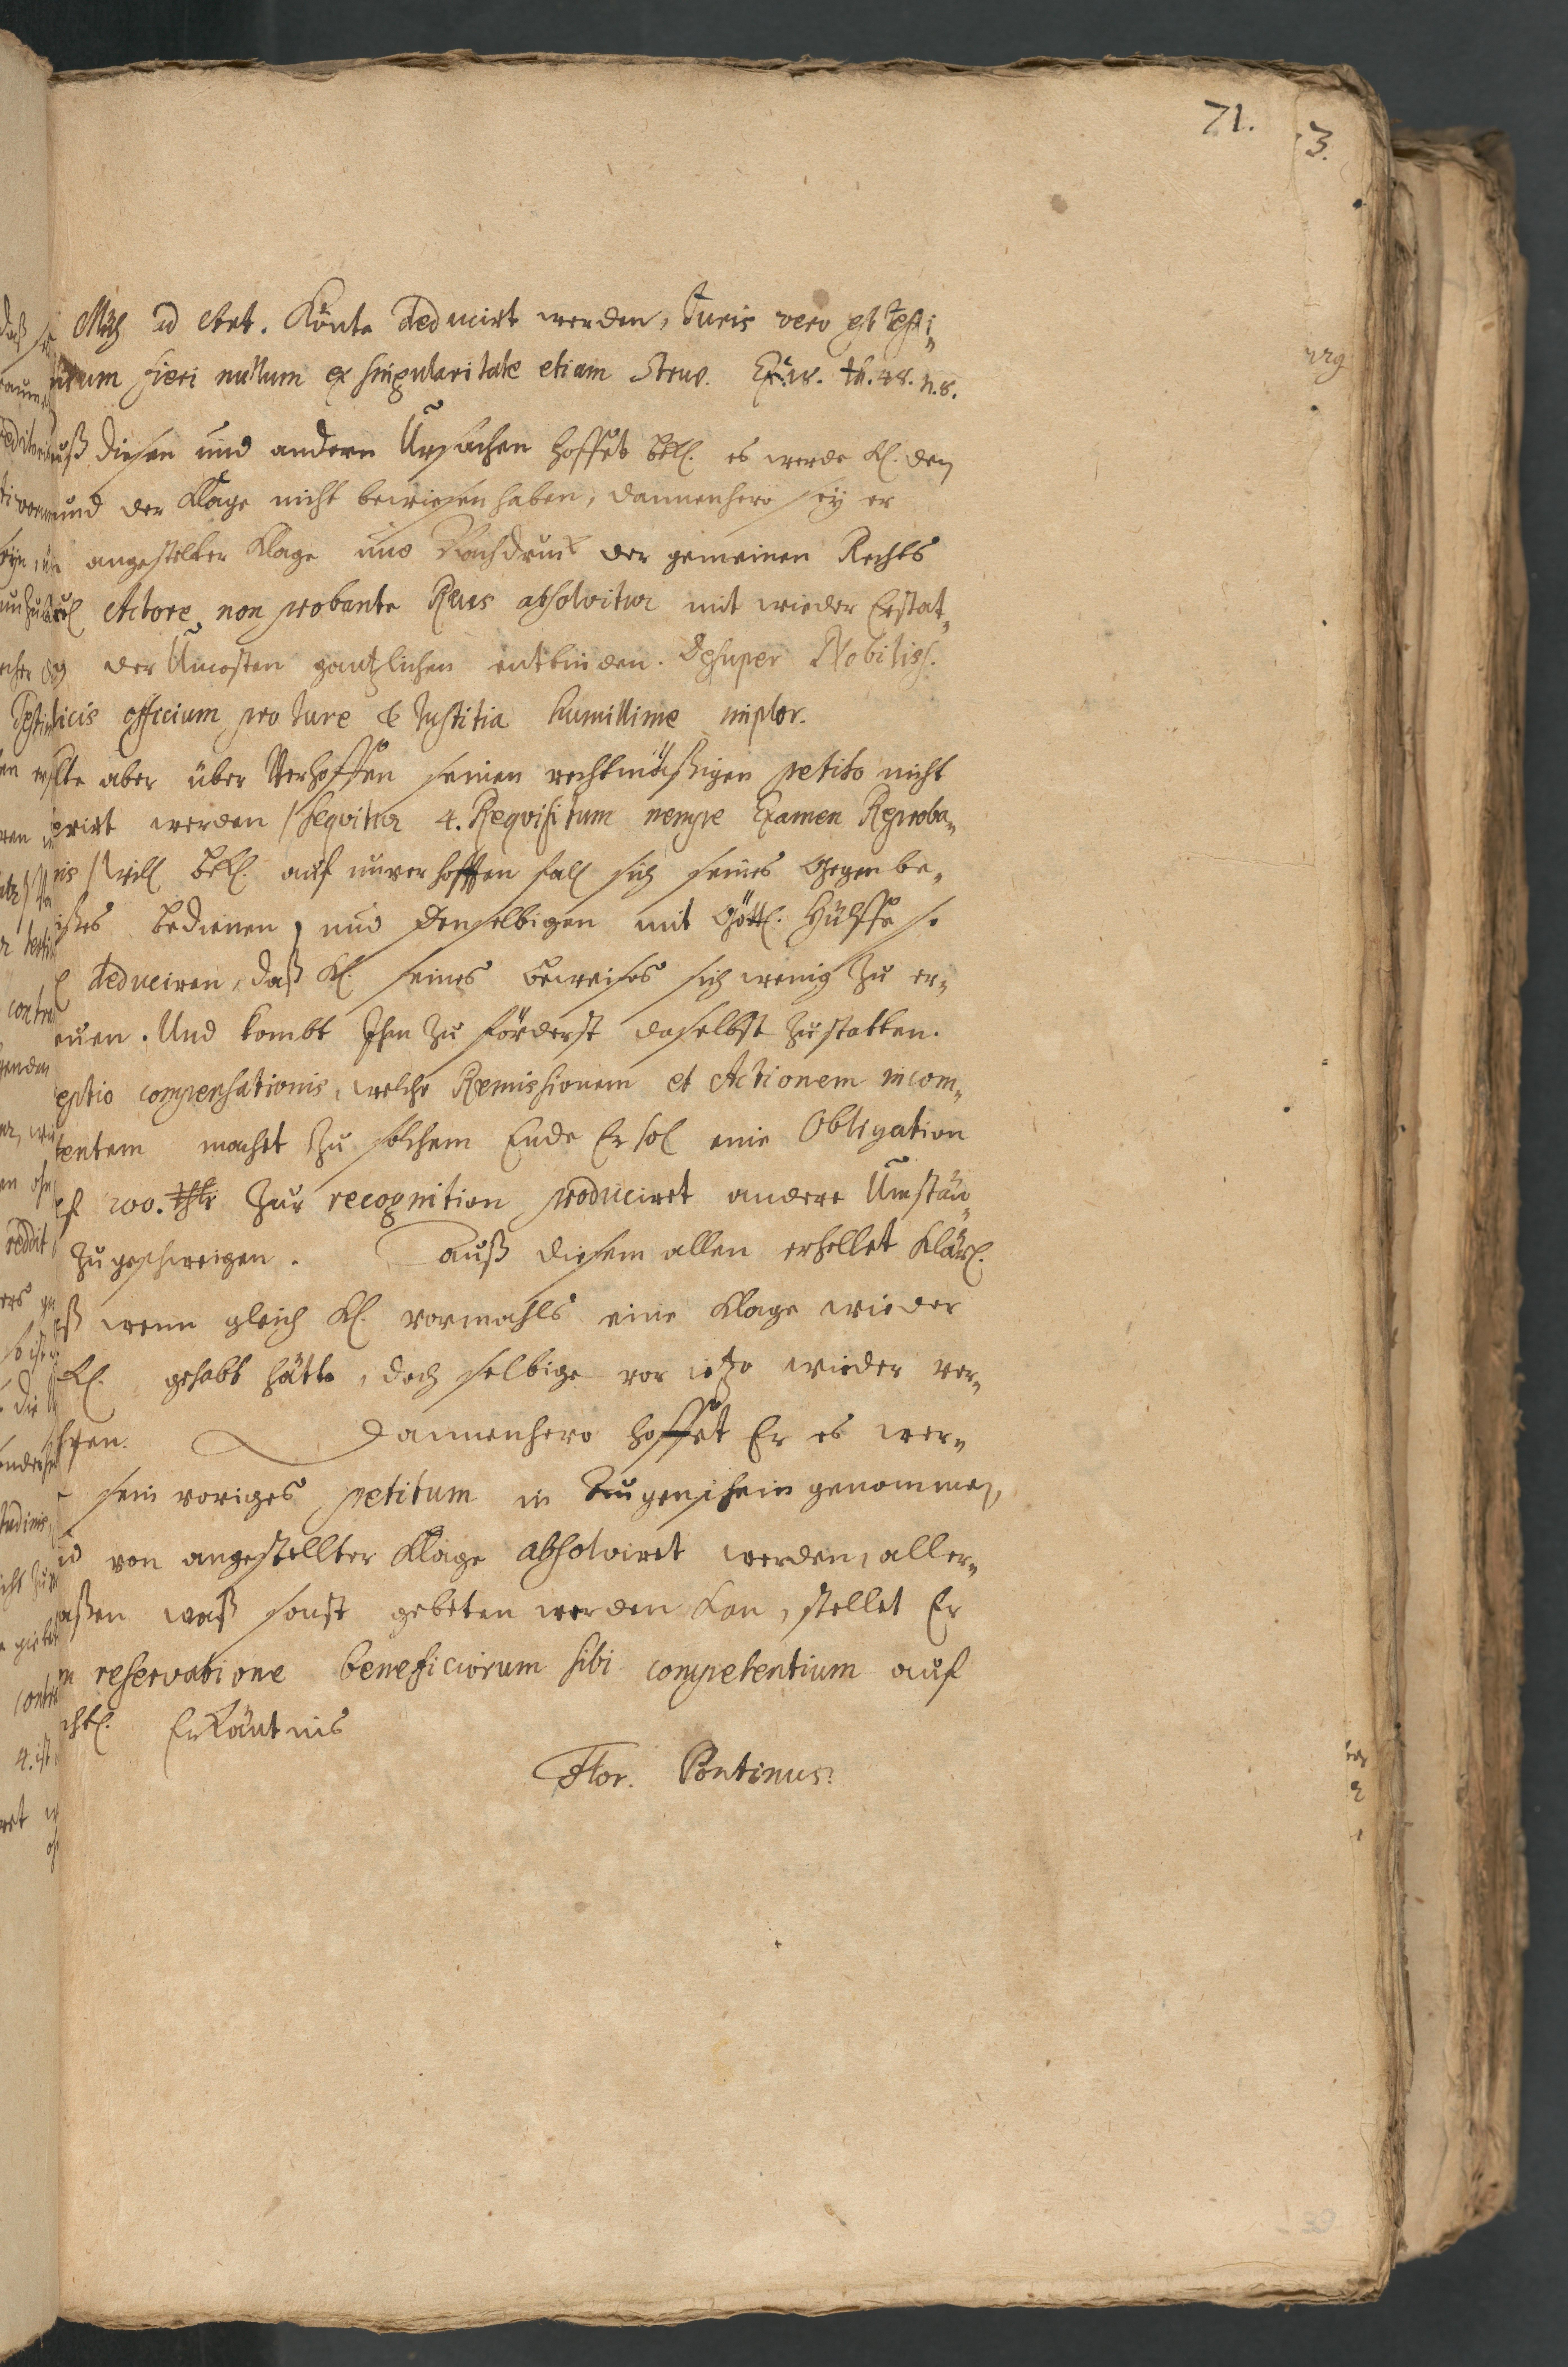 71.
3.
Mich ad Art. Könte deduciret werden, Iuris vero est testi„
nium fieri nullum ex singularitate etiam Struv. Ex. 28. th. 48. n. 8.
uß diesen und andern Ursachen hoffet Bekl. es werde Kl. den
rund der Klage nicht bewiesen haben, dannenhero sey er
angestelter Klage und Nachdruck der gemeinen Rechts
Actore non probante Reus absolvitur mit wieder Erstat„
der Uncosten gantzlichen entbinden. Desuper Nobiliss.
dicis officium pro Iure & Iustitia humillime implor.
lte aber über Verhoffen seinen rechtmäßigen petito nicht
erirt werden /sequitur 4. Reqvisitum nempe Examen Reproba„
nis/ will Bekl. auf unverhofften fall sich seines Gegenbe„
ißes bedienen, und denselbigen mit Göttl. Hülffe so
deduciren, daß Kl. seines beweises sich wenig zu er„
euen. Und kombt Ihm zu förderst daselbst zustatten.
eptio compensationis, welche Remissionem et Actionem incom„
tentem macht zu solchem Ende Er sol. eine Obligation
uf 200. thlr zur recognition produciret andere Umstän„
zugeschweigen. Auß diesem allen erhellet klärl.
ß wenn gleich Kl. vormahls eine Klage wieder
kl. gehabt hätte, doch selbige vor ietzo wieder ver„
hren. Dannenhero hoffet Er es wer„
sein voriges petitum in Augenschein genommen,
d von angestellter Klage absolviret werden, aller„
aßen waß sonst gebeten werden kan, stellet Er
m reservatione beneficiorum sibi competentium auf
chtl. Erkäntnis
Flor. Pontinus.